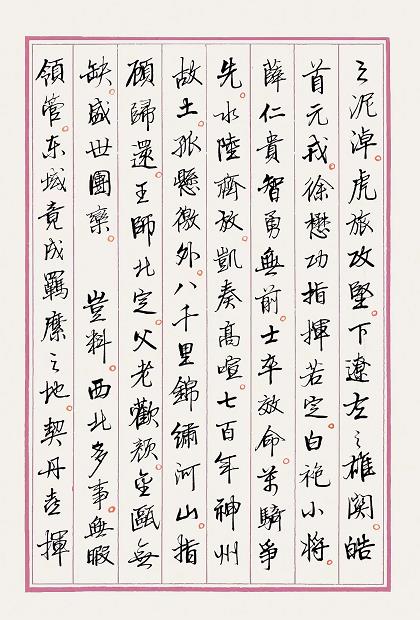 之泥淖虎旅攻堅下遼左之雄関皓
首元戎徐懋功指揮若定白袍小將
薛仁貴智勇無前士卒效命萬騎爭
先水陸齊放凱奏高喧七百年神州
故土孤懸徼外八千里錦繡河山指
顧歸還王師北定父老歡顏金甌無
缺盛世團欒 豈料西北多事無暇
領管东域竟成羈縻之地契丹壹揮